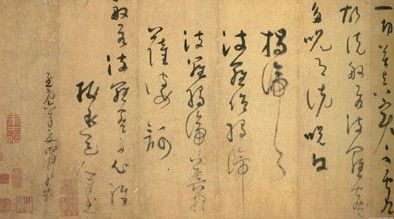 一切苦真實不虛
故說般若波羅蜜
多呪即說呪曰
揭諦〻
波羅揭諦
波羅僧揭諦菩提
薩婆訶
般若波羅蜜多心經
至元